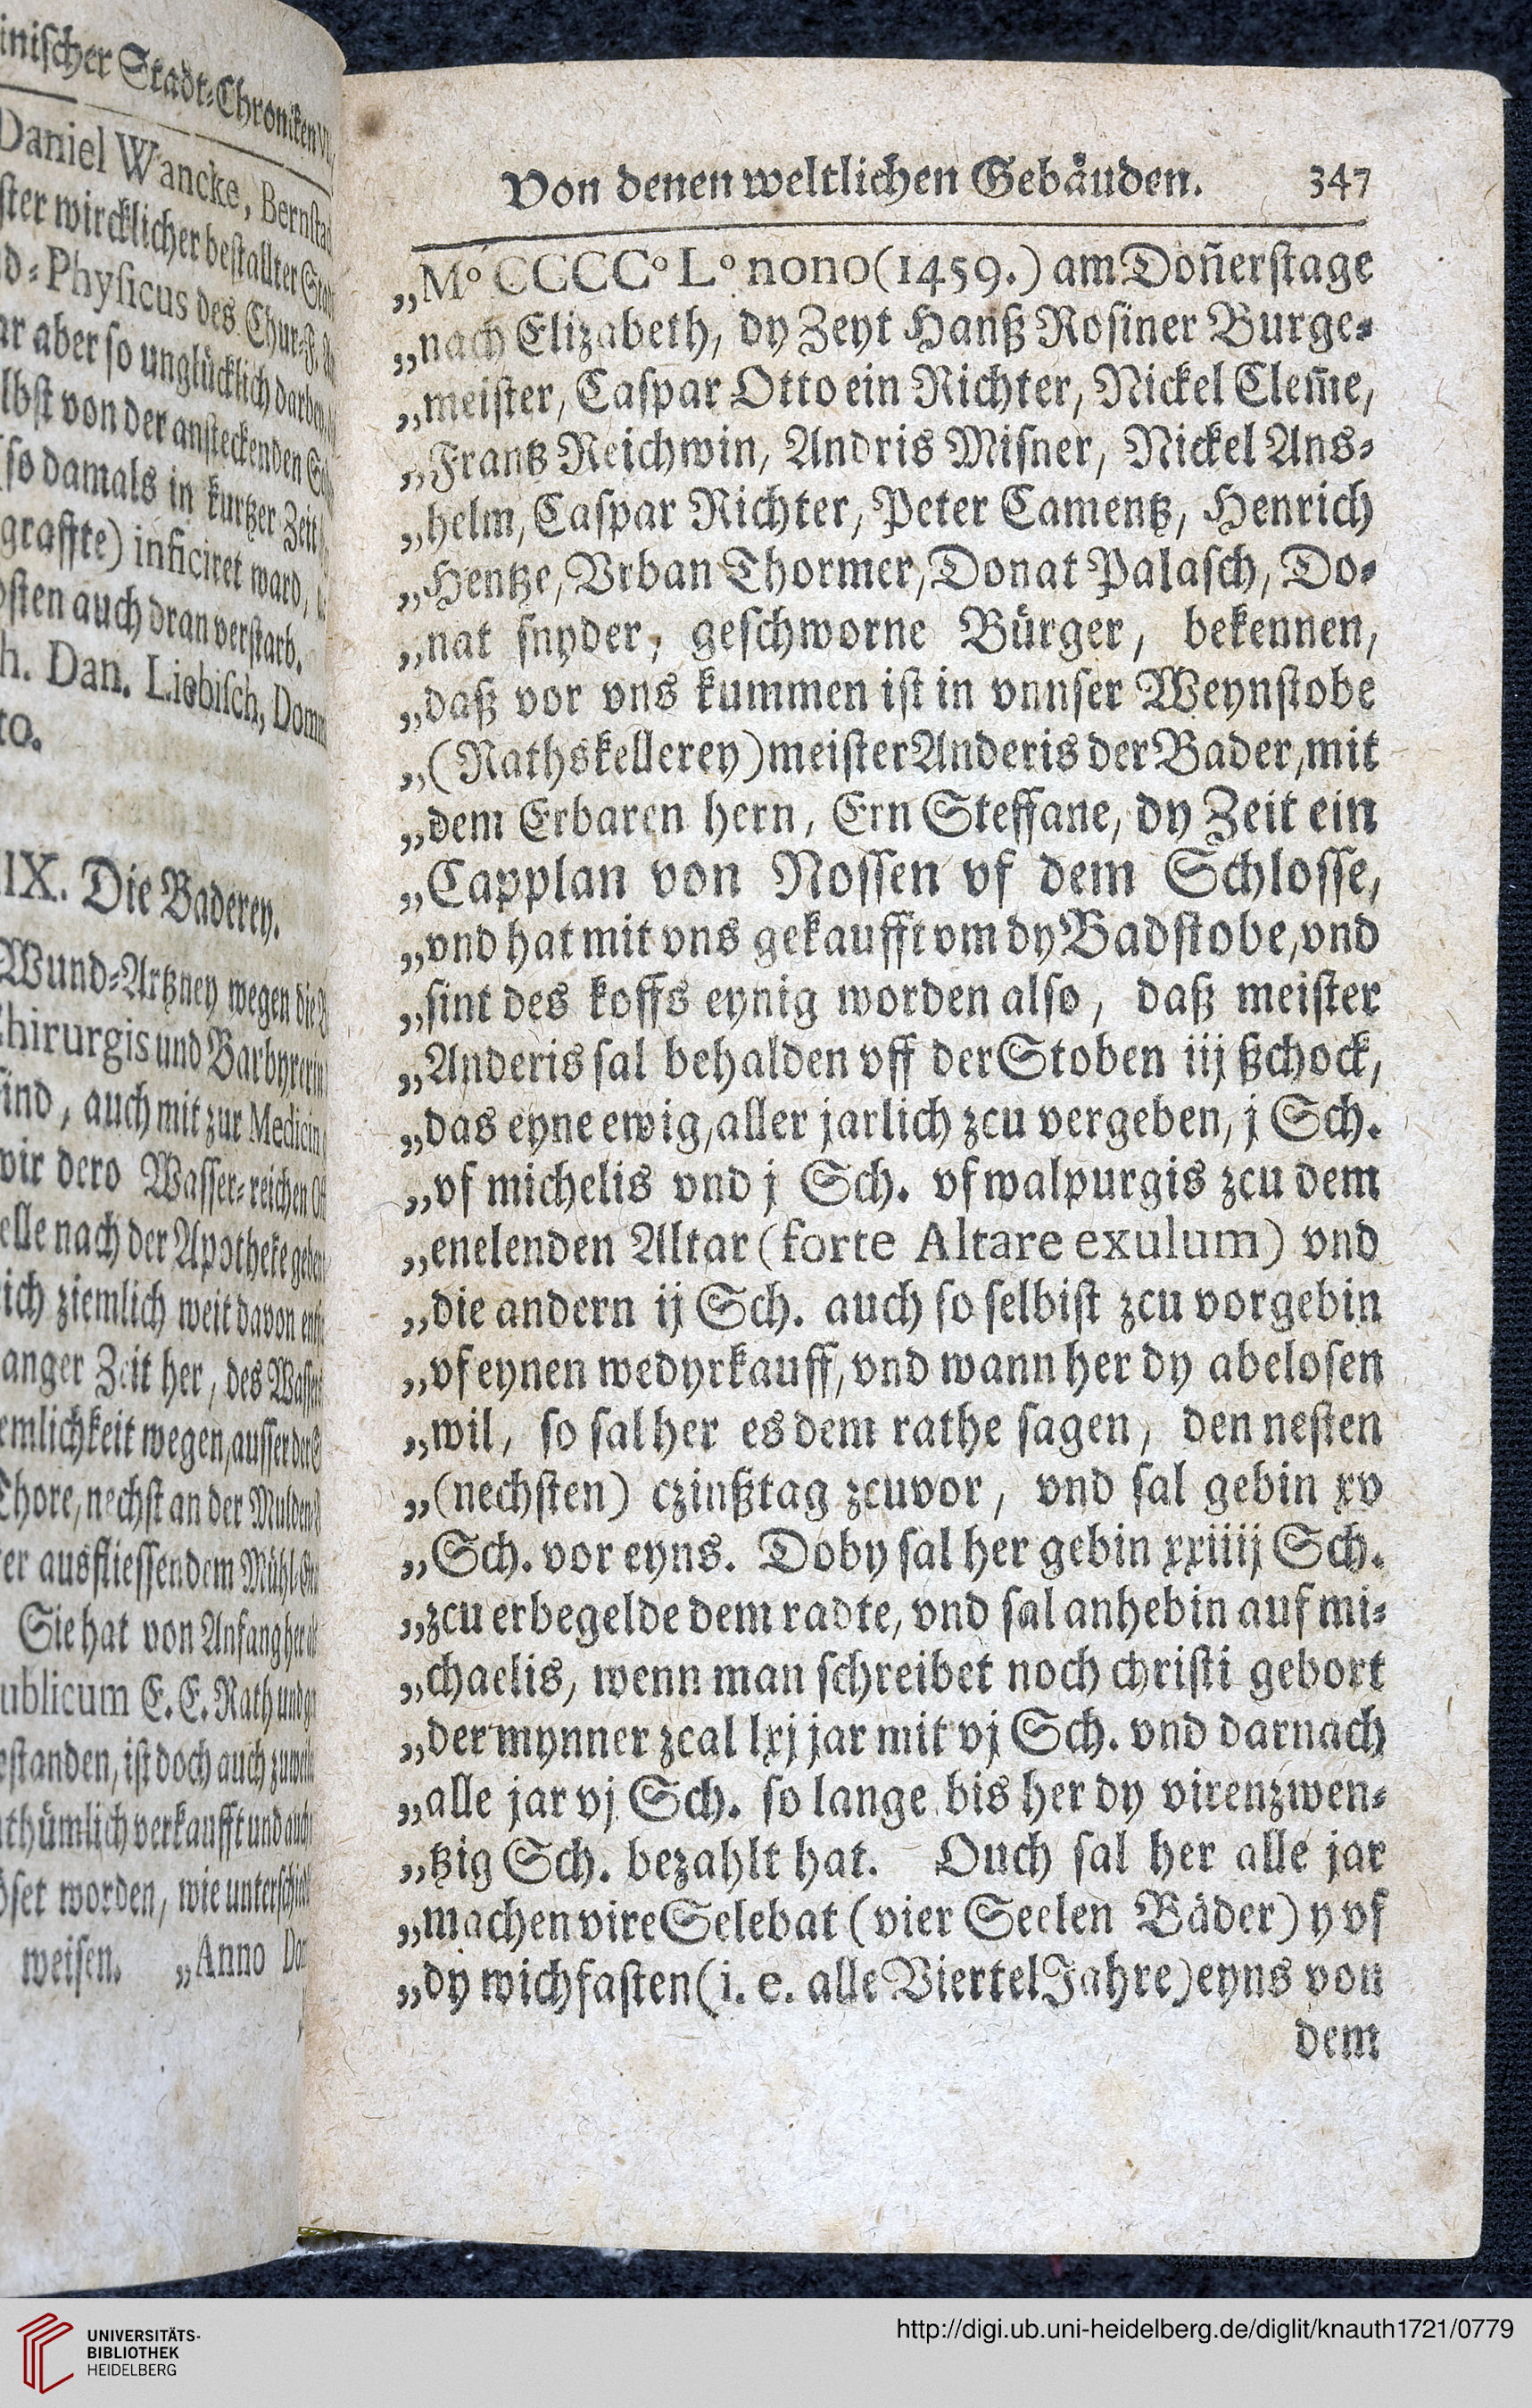 inischer Stadt-Chroniken VI.
Daniel Wancke, Bernstad
ster wircklicher bestallter
d-Physicus des Chur-F.
ar aber so unglücklich darbey,
lbst von der ansteckenden
(so damals in kurtzer Zeit
graffte) inficiret ward,
osten auch dran verstarb.
h. Dan. Liebisch, Domm
to.
IX. Die Baderey.
Wund-Artzney wegen die
Chirurgis und Barbyrern
sind, auch mit zur Medicin
wir dero Wasser-reichen
elle nach der Apotheke geben
ich ziemlich weit davon
anger Zeit her, des Wasser
emlichkeit wegen, ausser der
Thore, nechst an der Mulden
er ausfliessendem Mühl-
Sie hat von Anfang her
ublicum E. E. Rath und
estanden, ist doch auch
thümlich verkaufft und auch
öset worden, wie
weisen. „Anno
Von denen weltlichen Gebäuden. 347
„Mº CCCCº Lº nono (1459.) am Doñerstage
„nach Elizabeth, dy Zeyt Hanß Rosiner Burge-
„meister, Caspar Otto ein Richter, Nickel Clem̃e,
„Frantz Reichwin, Andris Misner, Nickel Ans-
„helm, Caspar Richter, Peter Camentz, Henrich
„Hentze, Vrban Thormer, Donat Palasch, Do-
„nat snyder, geschworne Bürger, bekennen,
„daß vor vns kummen ist in vnnser Weynstobe
„(Rathskellerey) meister Anderis der Bader, mit
„dem Erbaren hern, Ern Steffane, dy Zeit ein
„Capplan von Nossen vf dem Schlosse,
„vnd hat mit vns gekaufft vm dy Badstobe, vnd
„sint des koffs eynig worden also, daß meister
„Anderis sal behalden vff der Stoben iij ßchock,
„das eyne ewig, aller jarlich zcu vergeben, j Sch.
„vf michelis vnd j Sch. vf walpurgis zcu dem
„enelenden Altar (forte Altare exulum) vnd
„die andern ij Sch. auch so selbist zcu vorgebin
„vf eynen wedyrkauff, vnd wann her dy abelosen
„wil, so sal her es dem rathe sagen, den nesten
„(nechsten) czinßtag zcuvor, vnd sal gebin xv
„Sch. vor eyns. Doby sal her gebin xxiiij Sch.
„zcu erbegelde dem radte, vnd sal anhebin auf mi-
„chaelis, wenn man schreibet noch christi gebort
„der mynner zcal lxj jar mit vj Sch. vnd darnach
„alle jar vj Sch. so lange bis her dy virenzwen-
„tzig Sch. bezahlt hat. Ouch sal her alle jar
„machen vire Selebat (vier Seelen Bäder) y vf
„dy wichfasten (i. e. alle Viertel Jahre) eyns von
dem
UNIVERSITÄTS-
BIBLIOTHEK
HEIDELBERG
http://digi.ub.uni-heidelberg.de/diglit/knauth1721/0779